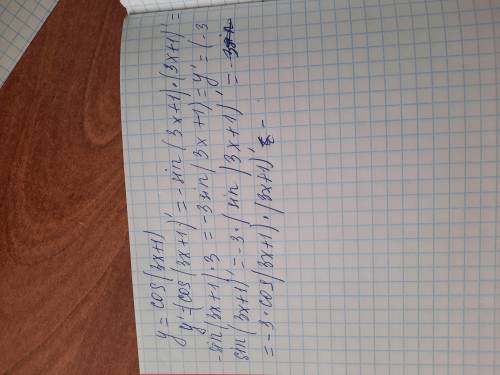 y = cos(3x+1)
y' = (cos(3x+1))' = -sin(3x+1)·(3x+1)' =
-sin(3x+1)·3 = -3sin(3x+1) = y' = (-3
sin(3x+1))' = -3·(sin(3x+1))' =
= -3·cos(3x+1)·(3x+1)'